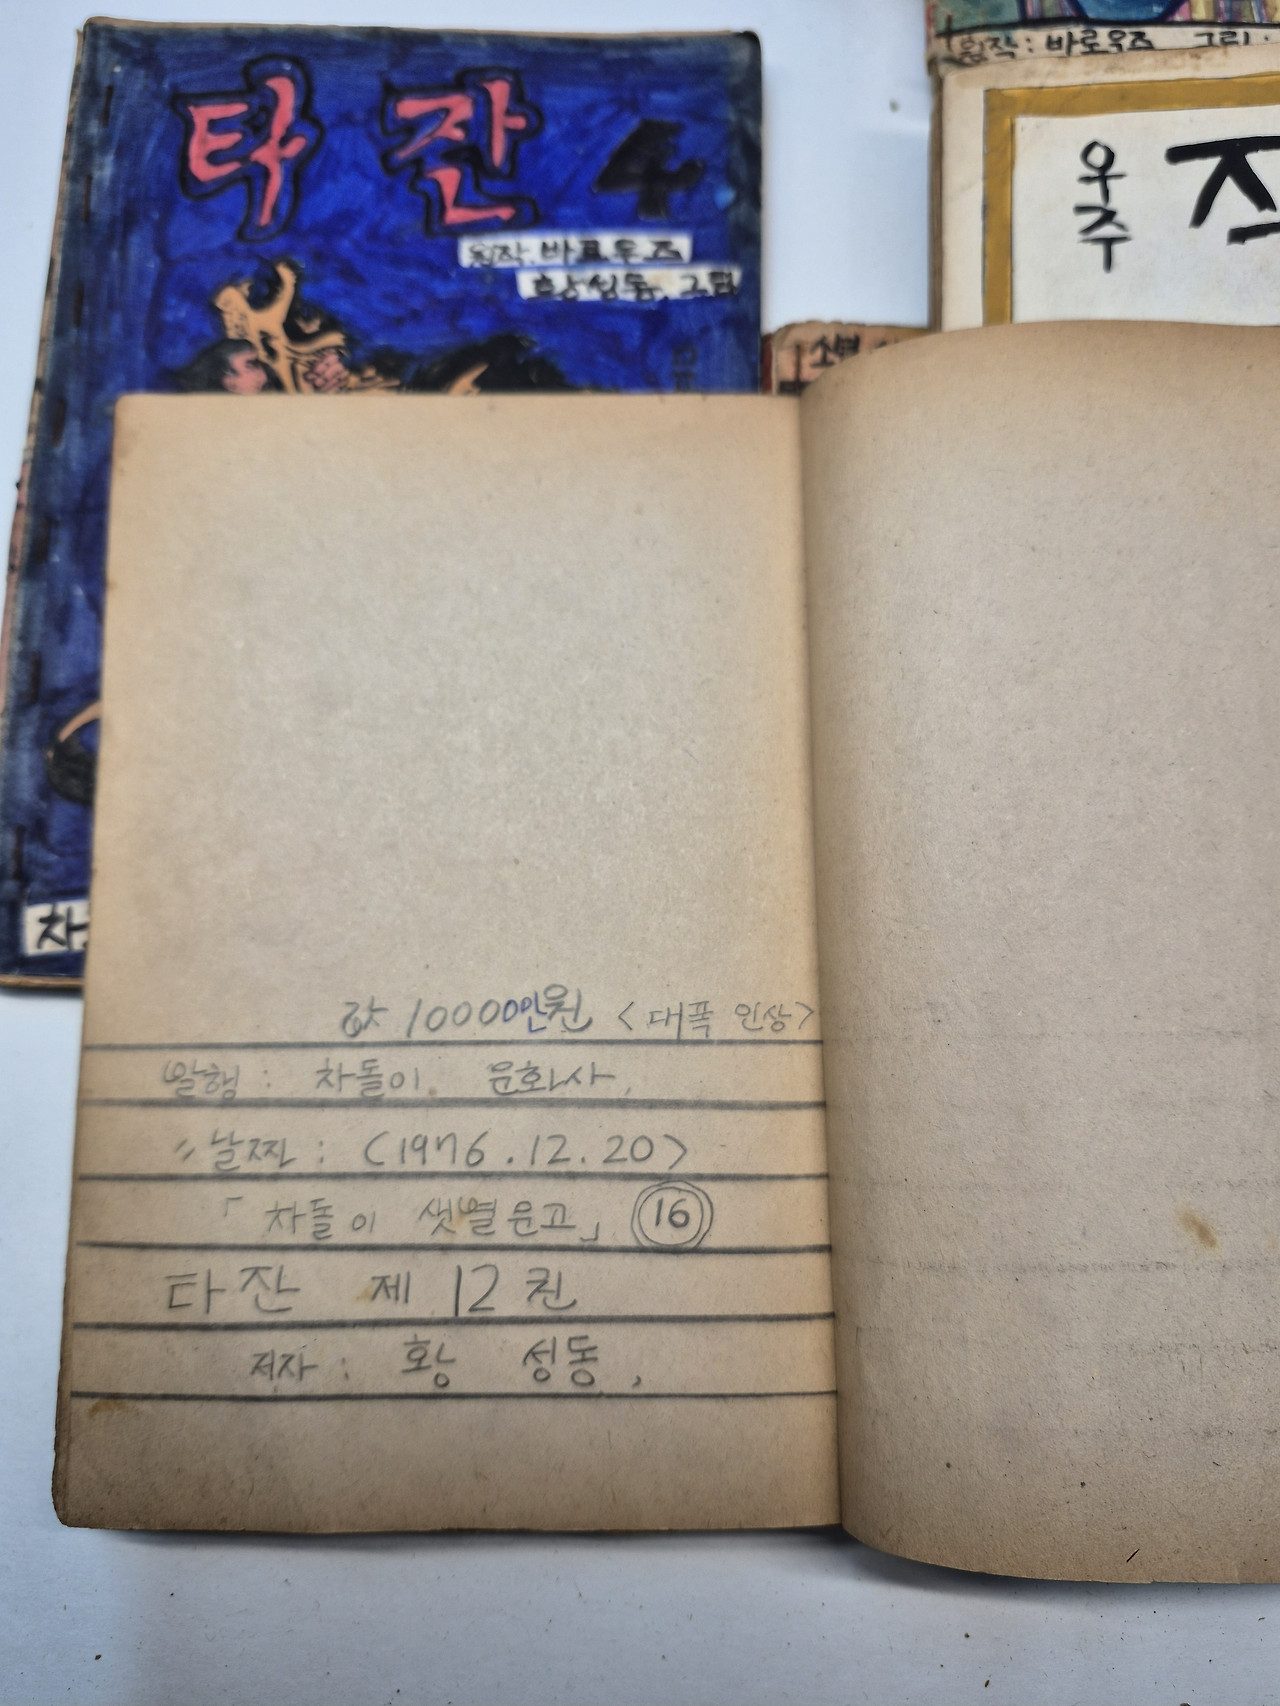 타잔 4
원작. 바로우즈
황성동. 그림
차
원작 : 바로우즈 그림 :
우주
값 10000만원 <대폭 인상>
발행 : 차돌이. 문화사,
〃날짜 : (1976.12.20)
「차돌이 샛별문고」 16
타잔 제 12 권
저자 : 황 성동,